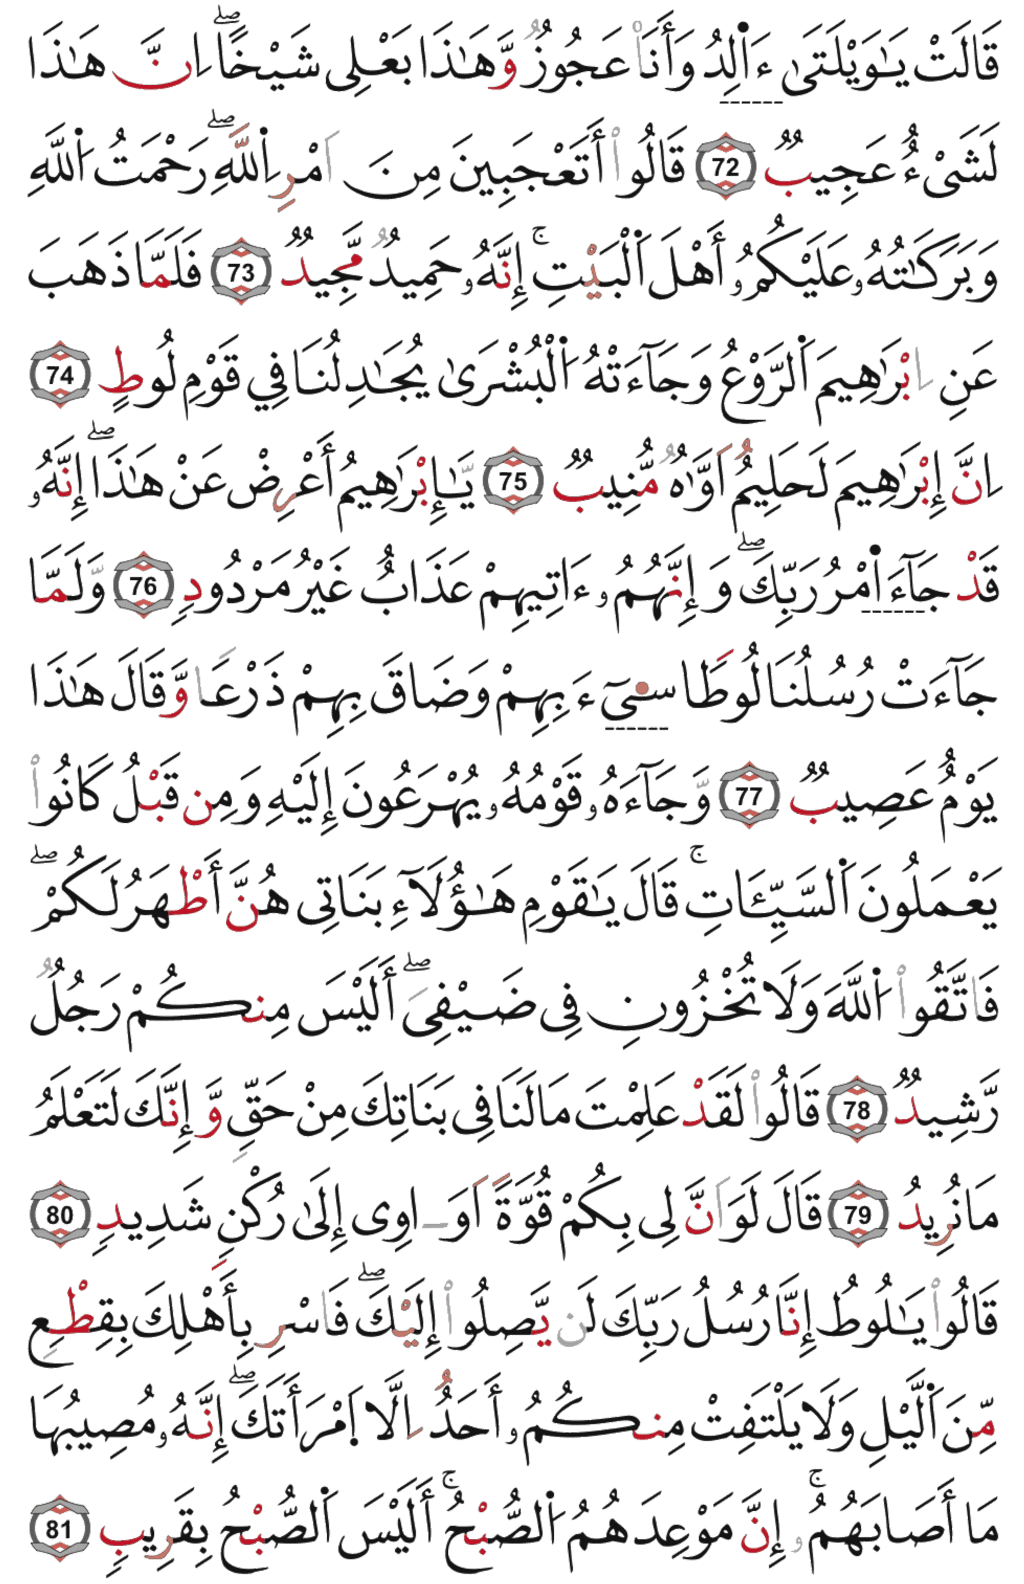 قَالَتْ يَٰوَيْلَتَىٰ ءَا۬لِدُ وَأَنَا۠ عَجُوزٌ وَّهَٰذَا بَعْلِى شَيْخًا اِنَّ هَٰذَا
لَشَىْءٌ عَجِيبٌ 72 قَالُوا۟ أَتَعْجَبِينَ مِنَ اَمْرِ اِ۬للَّهِ رَحْمَتُ اُ۬للَّهِ
وَبَرَكَٰتُهُۥ عَلَيْكُمُۥ أَهْلَ اَ۬لْبَيْتِ إِنَّهُۥ حَمِيدٌ مَّجِيدٌ 73 فَلَمَّا ذَهَبَ
عَنِ اِبْرَٰهِيمَ اَ۬لرَّوْعُ وَجَآءَتْهُ اُ۬لْبُشْرَىٰ يُجَٰدِلُنَا فِي قَوْمِ لُوطٍ 74
اِنَّ إِبْرَٰهِيمَ لَحَلِيمٌ اَوَّٰهٌ مُّنِيبٌ 75 يَٰٓإِبْرَٰهِيمُ أَعْرِضْ عَنْ هَٰذَا إِنَّهُۥ
قَدْ جَآءَ ا۬مْرُ رَبِّكَ وَإِنَّهُمُۥ ءَاتِيهِمْ عَذَابٌ غَيْرُ مَرْدُودٍ 76 وَّلَمَّا
جَآءَتْ رُسُلُنَا لُوطًا سِىٓءَ بِهِمْ وَضَاقَ بِهِمْ ذَرْعًا وَّقَالَ هَٰذَا
يَوْمٌ عَصِيبٌ 77 وَّجَآءَهُۥ قَوْمُهُۥ يُهْرَعُونَ إِلَيْهِ وَمِن قَبْلُ كَانُوا۟
يَعْمَلُونَ اَ۬لسَّيِّـَٔاتِ قَالَ يَٰقَوْمِ هَٰٓؤُلَآءِ بَنَاتِى هُنَّ أَطْهَرُ لَكُمْ
فَاتَّقُوا۟ اُ۬للَّهَ وَلَا تُخْزُونِ فِى ضَيْفِىَ أَلَيْسَ مِنكُمْ رَجُلٌ
رَّشِيدٌ 78 قَالُوا۟ لَقَدْ عَلِمْتَ مَا لَنَا فِى بَنَاتِكَ مِنْ حَقٍّ وَّإِنَّكَ لَتَعْلَمُ
مَا نُرِيدُ 79 قَالَ لَوَ اَنَّ لِى بِكُمْ قُوَّةً اَوَ ـ اوِى إِلَىٰ رُكْنٍ شَدِيدٍ 80
قَالُوا۟ يَٰلُوطُ إِنَّا رُسُلُ رَبِّكَ لَن يَّصِلُوا۟ إِلَيْكَ فَاسْرِ بِأَهْلِكَ بِقِطْعٍ
مِّنَ اَ۬لَّيْلِ وَلَا يَلْتَفِتْ مِنكُمُۥ أَحَدٌ اِلَّا اَ۪مْرَأَتَكَ إِنَّهُۥ مُصِيبُهَا
مَا أَصَابَهُمُۥ إِنَّ مَوْعِدَهُمُ اُ۬لصُّبْحُ أَلَيْسَ اَ۬لصُّبْحُ بِقَرِيبٍ 81